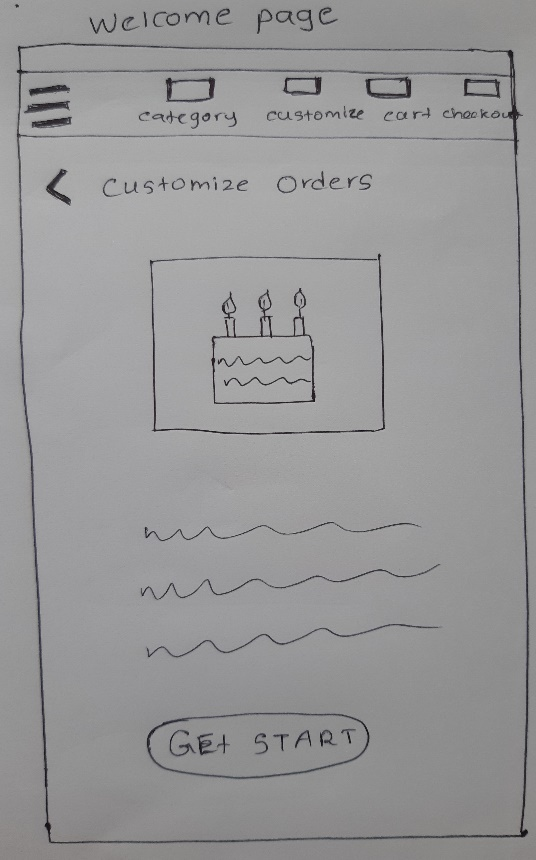 Welcome page
category customize cart checkout
Customize Orders
GEt START